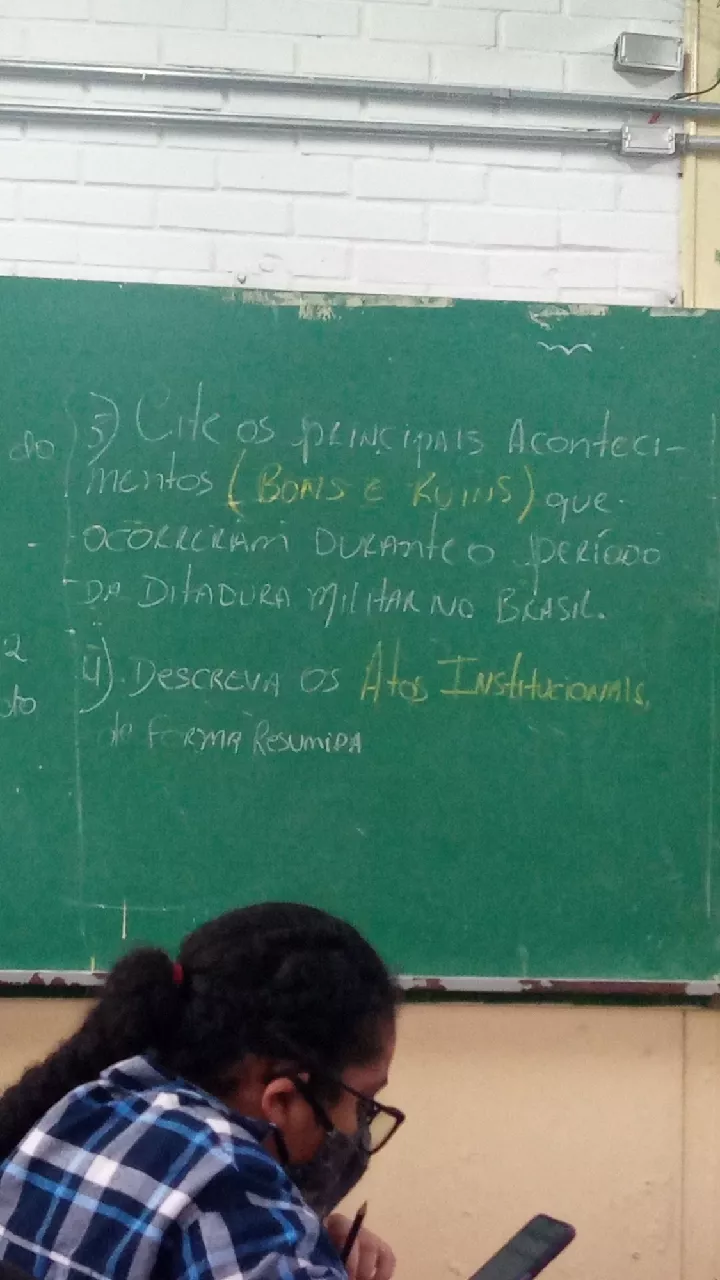 do
3) Cite os principais aconteci-
mentos (Bons e Ruins) que
ocorreram durante o período
da Ditadura Militar no Brasil.
2
4). Descreva os Atos Institucionais,
de forma resumida